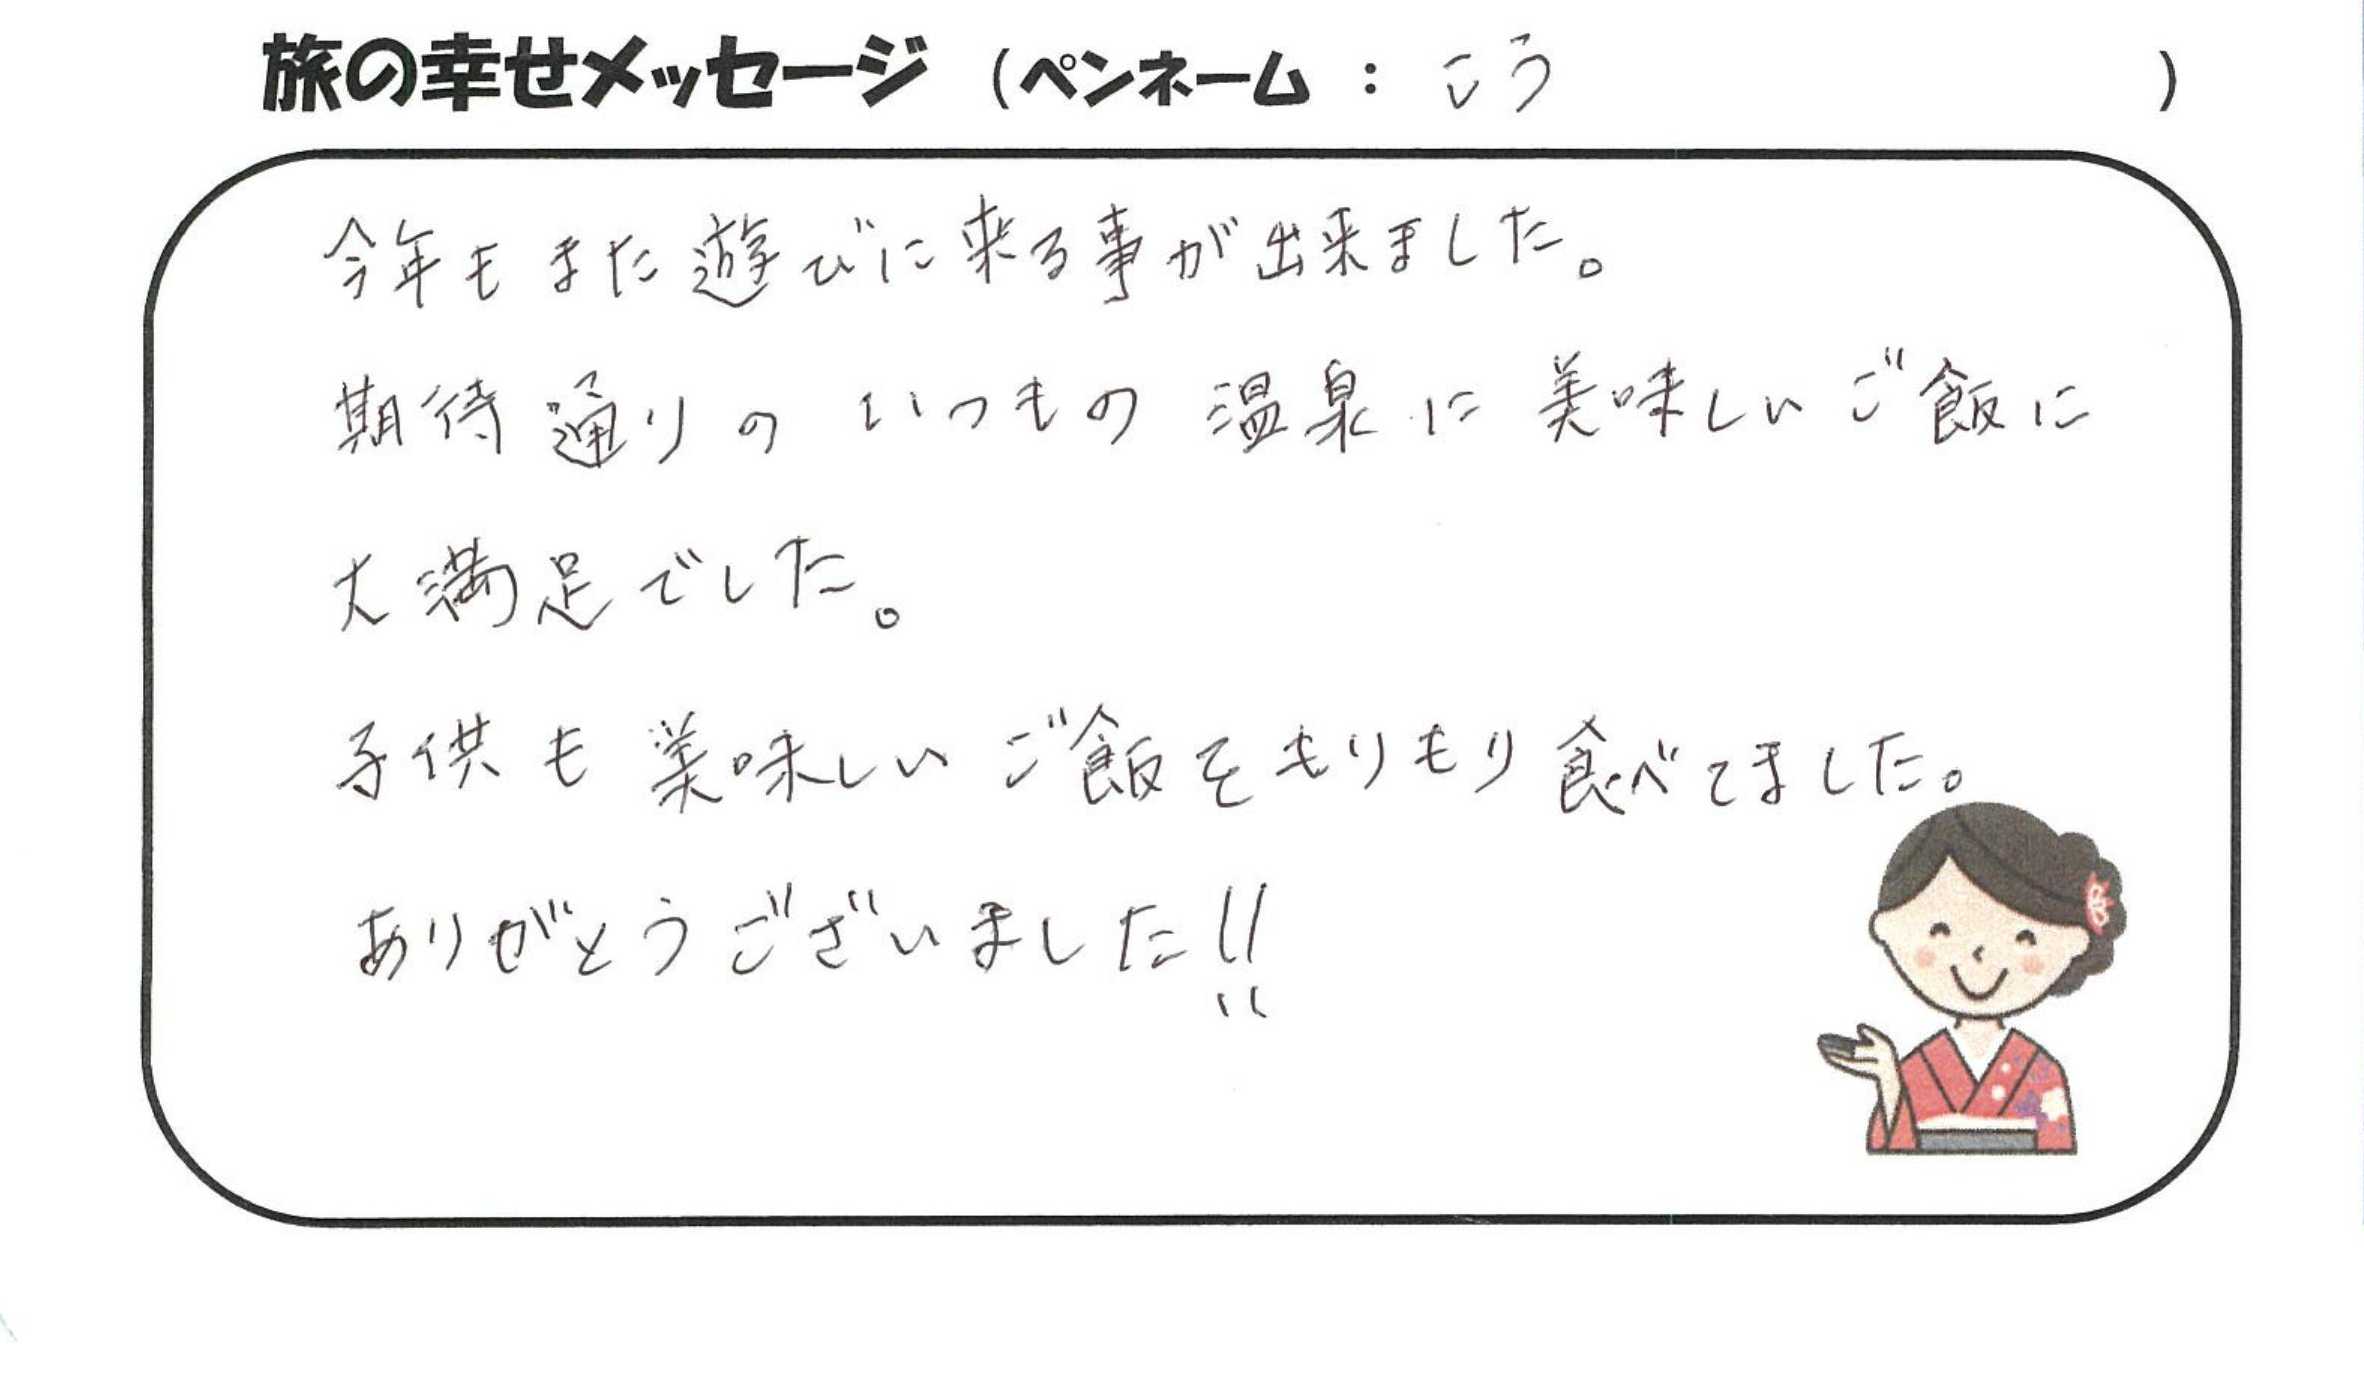 旅の幸せメッセージ (ペンネーム : こう )
今年もまた遊びに来る事が出来ました。
期待通りの いつもの 温泉に 美味しいご飯に
大満足でした。
子供も 美味しい ご飯をもりもり食べてました。
ありがとうございました!!